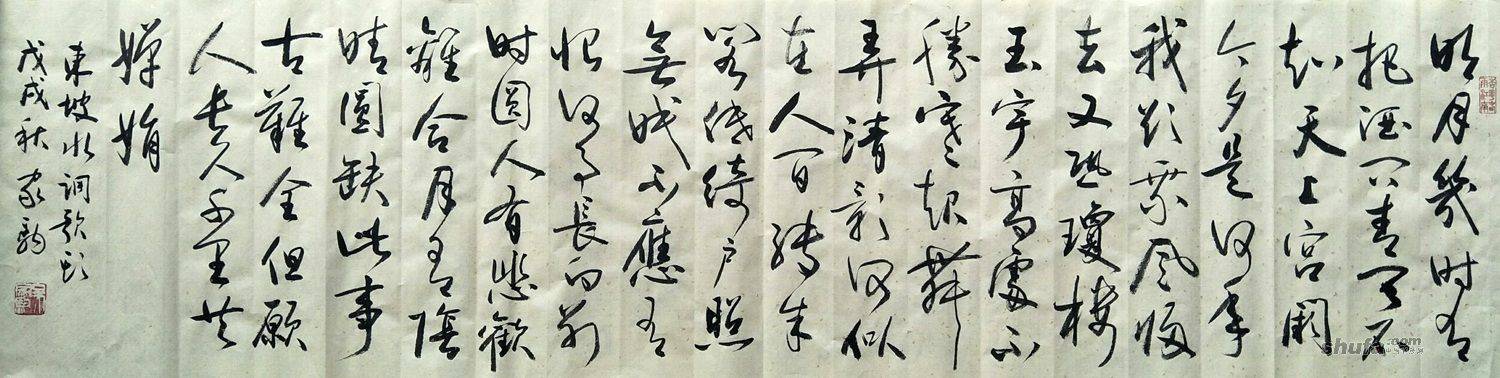 明月幾时有
把酒问青天不
知天上宫阙
今夕是何年
我欲乘风归
去又恐瓊楼
玉宇高處不
勝寒起舞
弄清影何似
在人间转朱
阁低绮户照
無眠不應有
恨何事長向别
时圆人有悲歡
離合月有陰
晴圓缺此事
古難全但願
人長久千里共
嬋娟
東坡水调歌頭
戊戌秋家